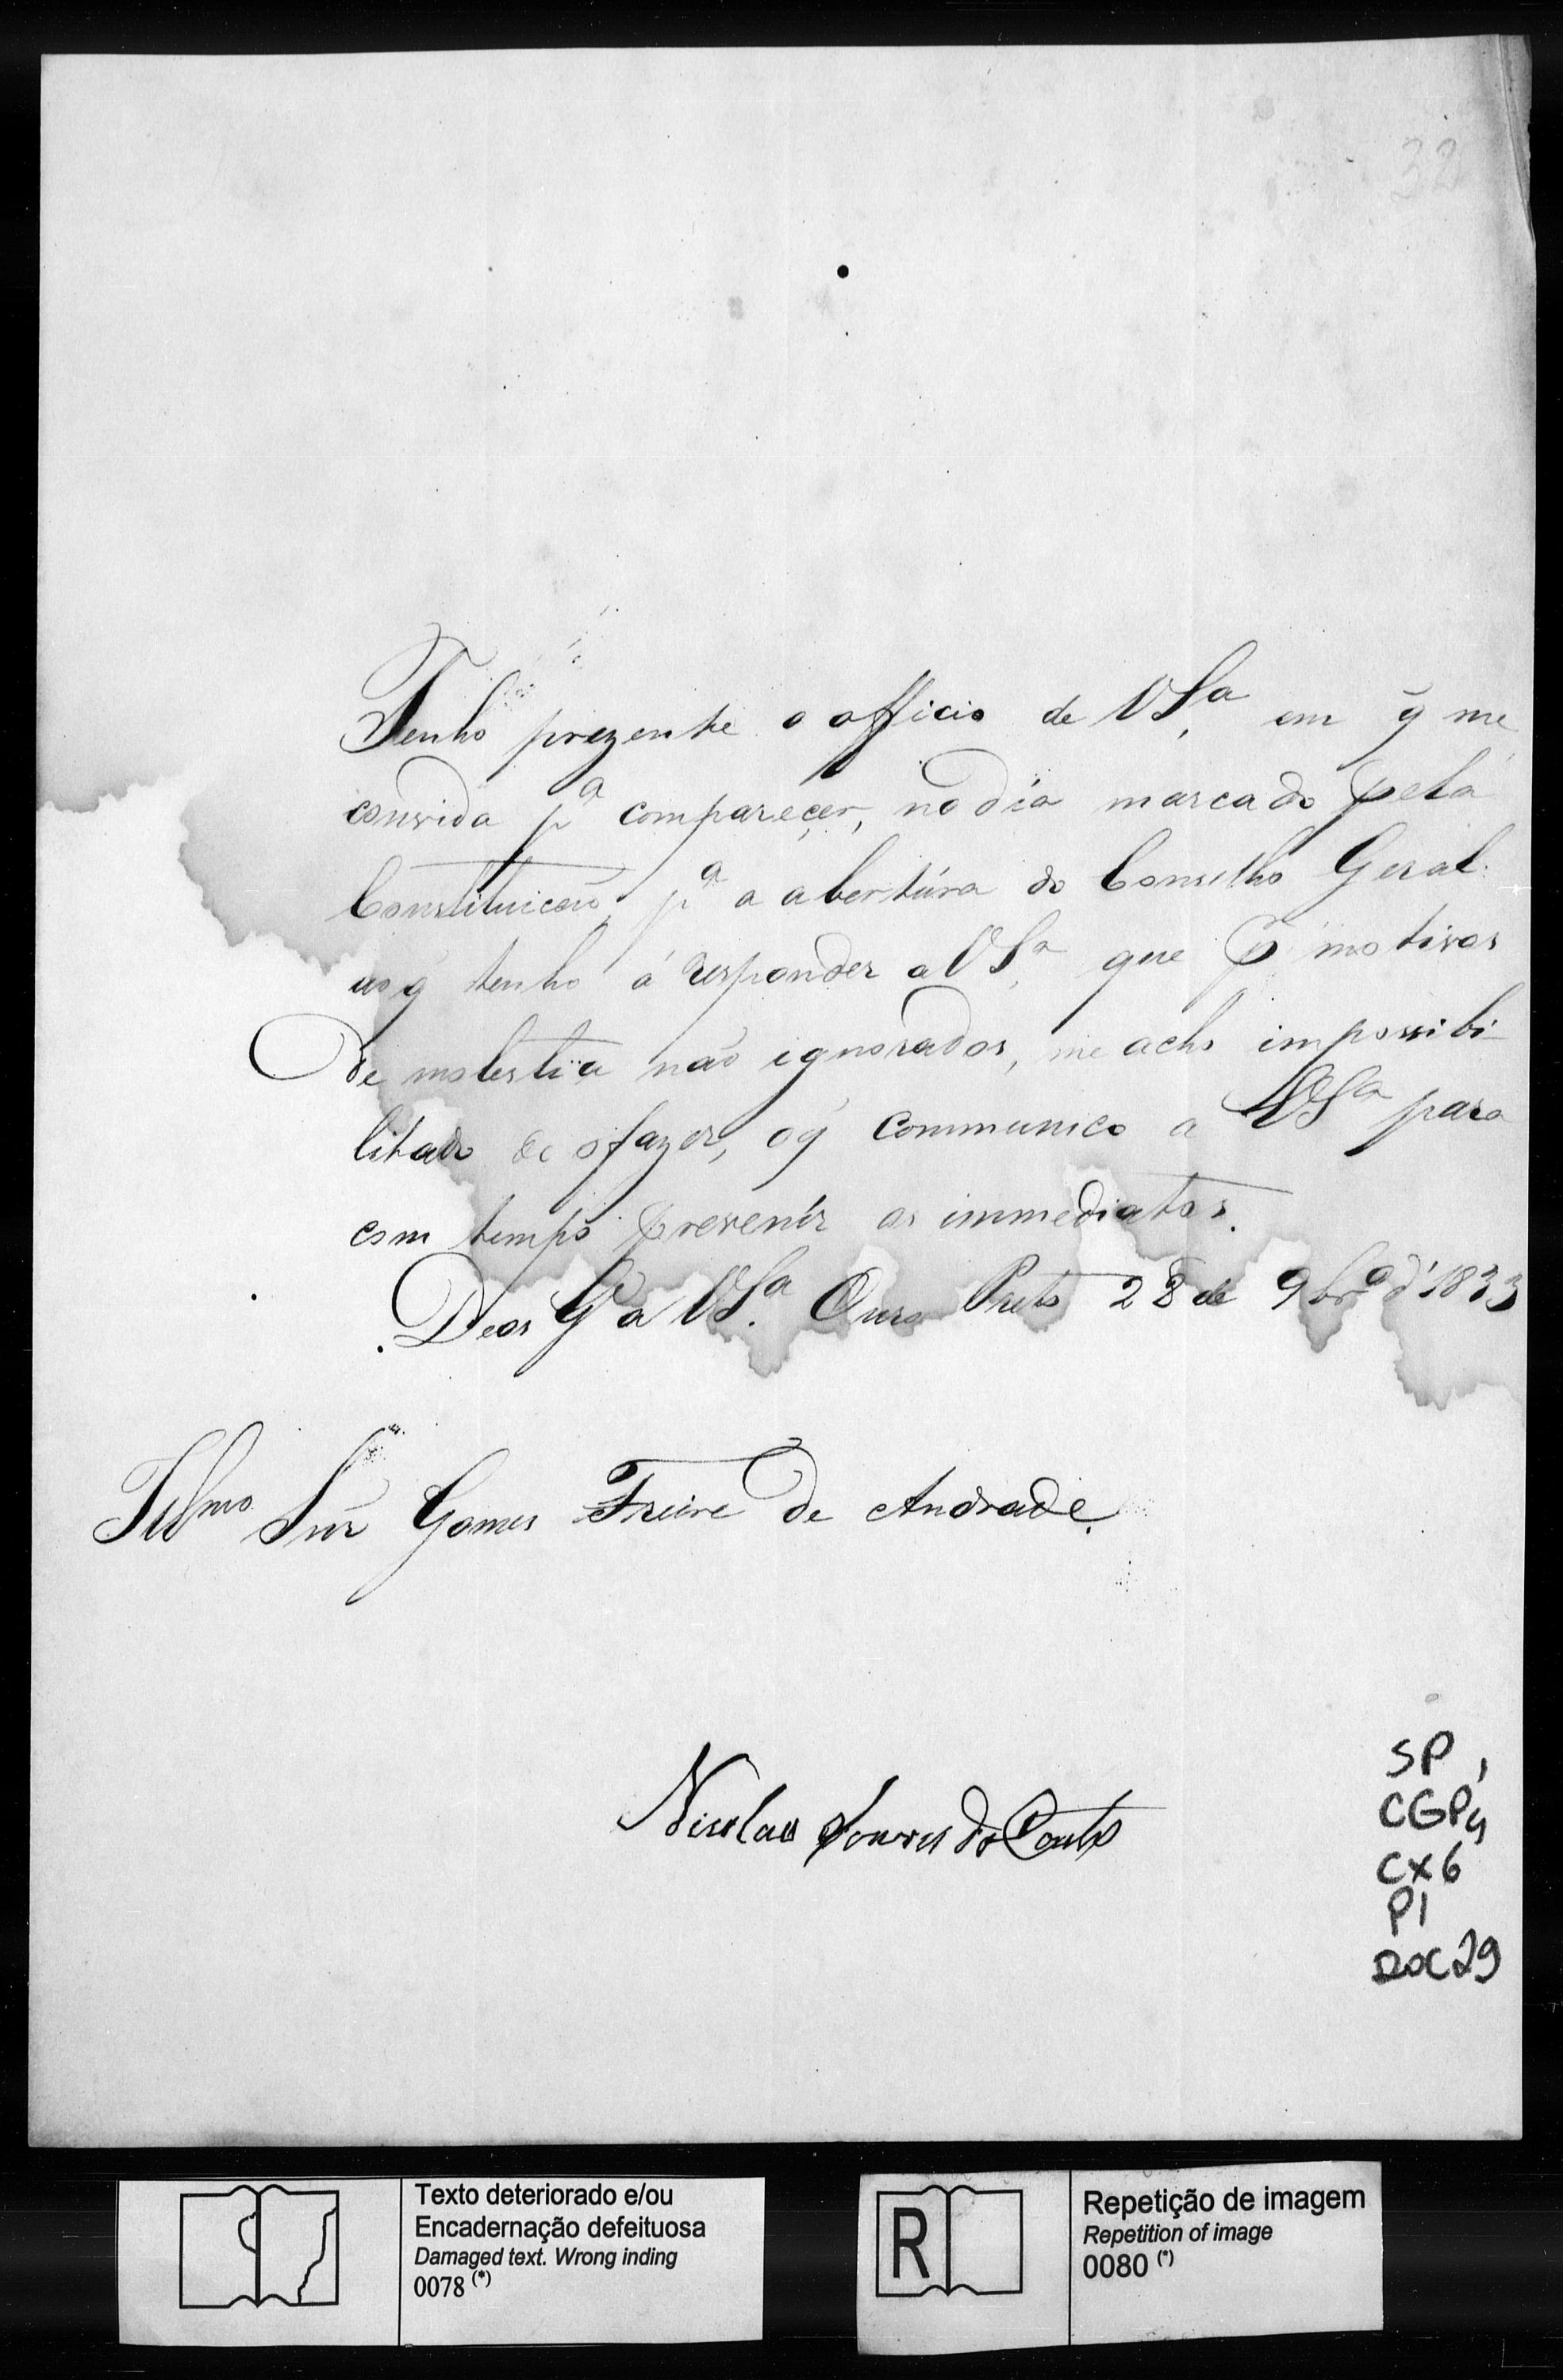 32
Tenho prezente o officio de VSª, em q̃ me
convida pª compareçer, no dia marcado pela
Constituicaõ pª a abertúra do Conselho Geral
ao q̃ tenho á responder a VSª, que p motivos
de molestia não ignorados, me acho impossibi-
litado de o fazer, o q̃ communico a VSª para
com tempo prevenir os immediatos.
Deos G a VSª. Ouro Preto 28 de 9brº d'1833
Illmo Snr Gomes Freire de Andrade.
Nicolao Soares do Couto
SP,
CGP4
CX6
P1
DOC29
Texto deteriorado e/ou
Encadernação defeituosa
Damaged text. Wrong inding
0078 (*)
R
Repetição de imagem
Repetition of image
0080 (*)